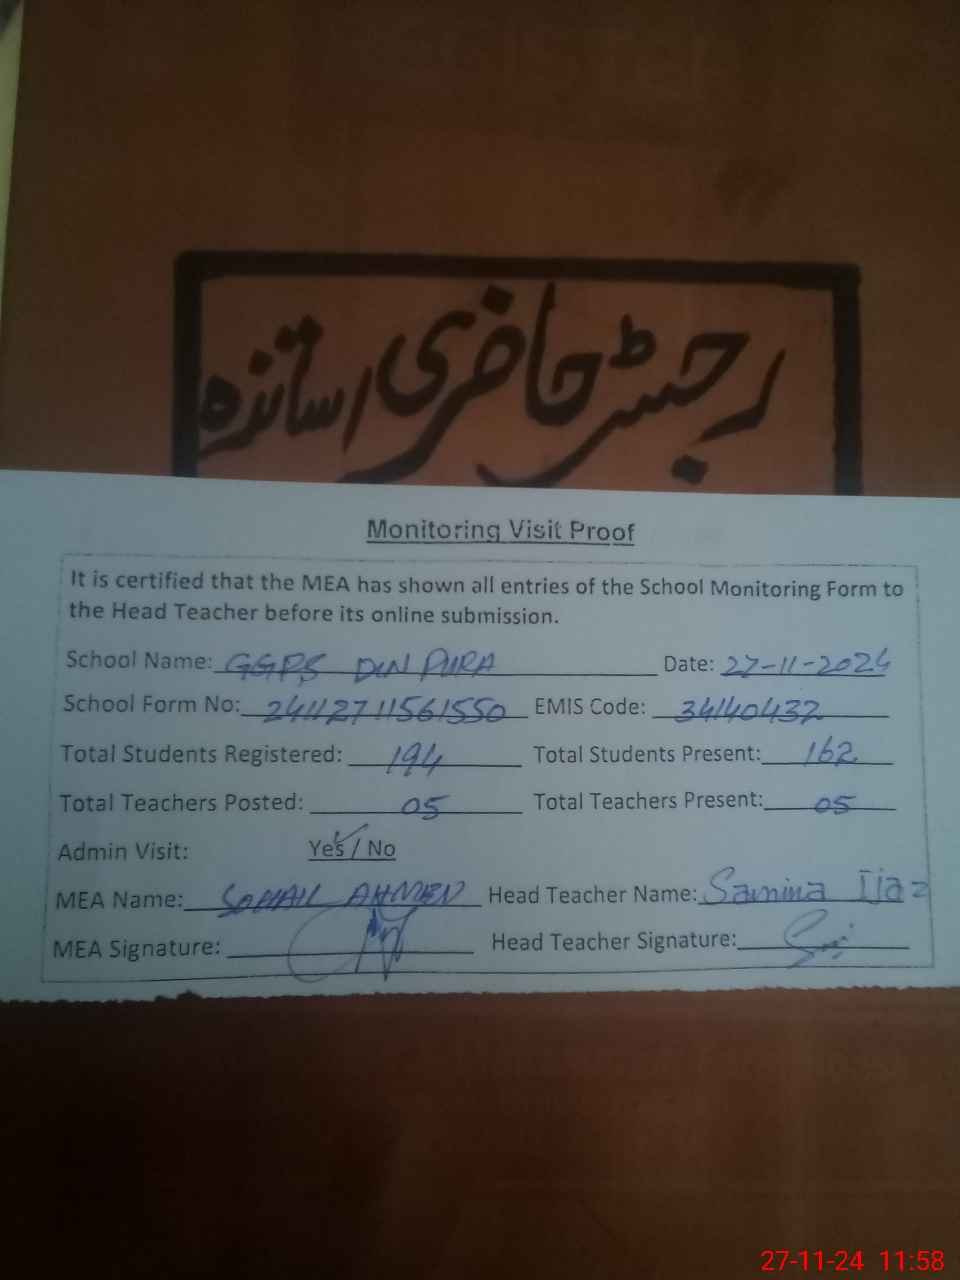 رجسٹر حاضری اساتذہ
Monitoring Visit Proof
It is certified that the MEA has shown all entries of the School Monitoring Form to
the Head Teacher before its online submission.
School Name: GGPS DIN PURA Date: 27-11-2024
School Form No: 24112711561550 EMIS Code: 34140432
Total Students Registered: 194 Total Students Present: 162
Total Teachers Posted: 05 Total Teachers Present: 05
Admin Visit: Yes / No
MEA Name: SOHAIL AHMED Head Teacher Name: Samina Ijaz
MEA Signature: Head Teacher Signature:
27-11-24 11:58